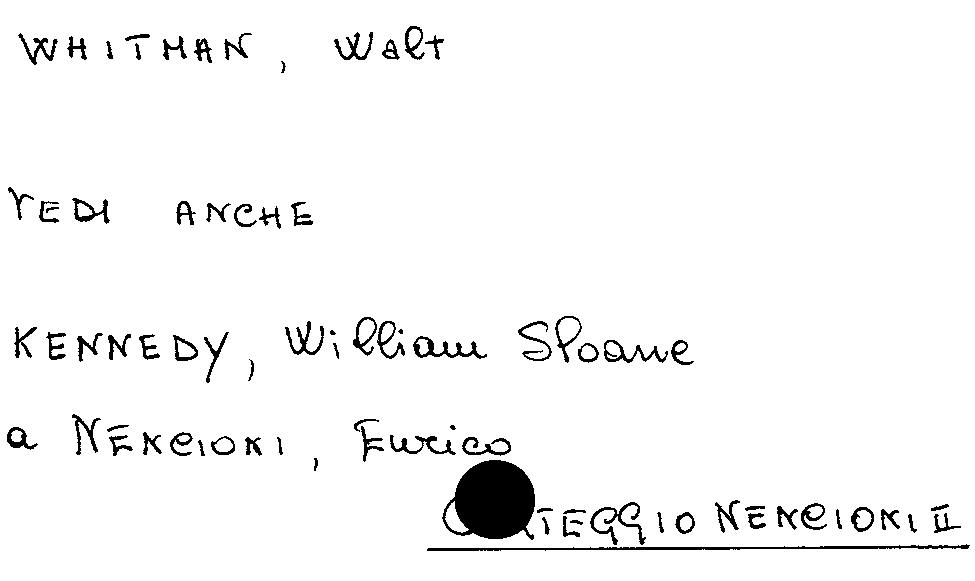 WHITMAN, Walt
VEDI ANCHE
KENNEDY, William Sloane
a NENCIONI, Enrico
NENCIONI II